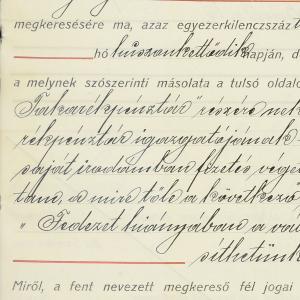 megkeresésére ma, azaz egyezerkilenczszáz
hó huszonkettedik napján, d
a melynek szószerinti másolata a tulsó oldalo
Takarékpénztár" részére nek
rékpénztár igazgatójának
saját irodámban fizetés vége
tam, a mire tőle a következő
"Fedezet hiányában a vál
síthetünk
Miről, a fent nevezett megkereső fél jogai